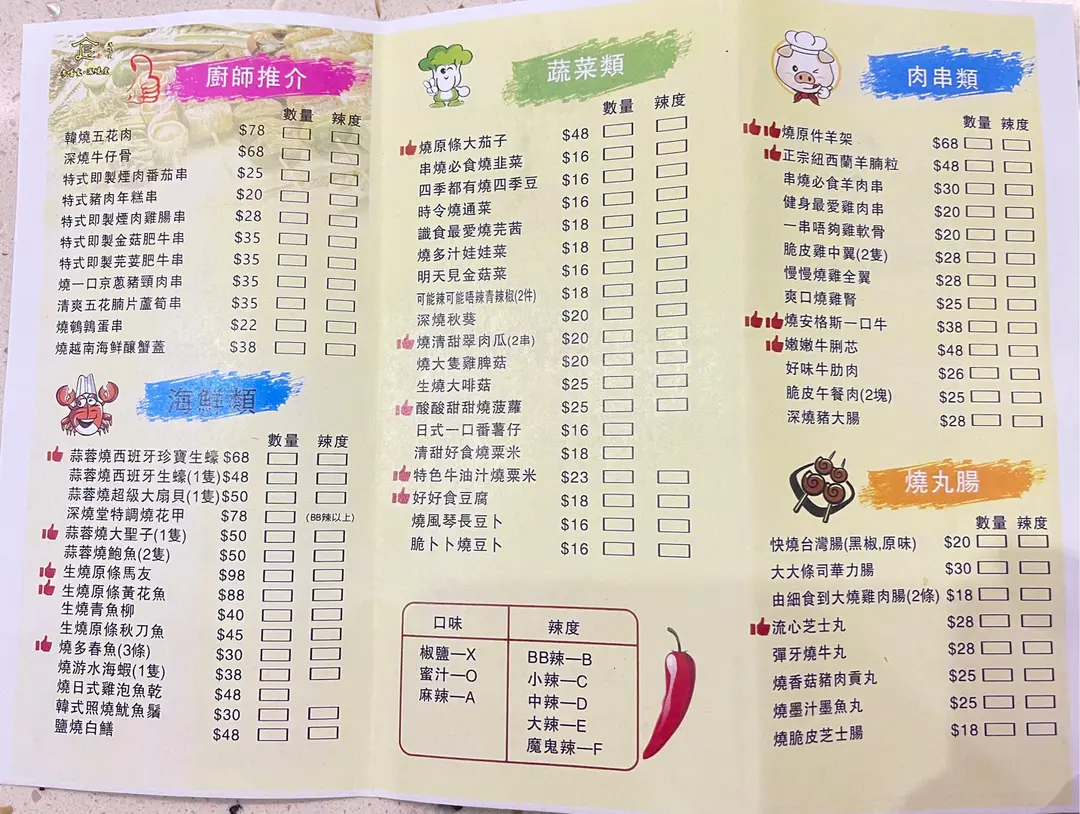 食
廚師推介
數量 辣度
韓燒五花肉 $78
深燒牛仔骨 $68
特式即製煙肉番茄串 $25
特式豬肉年糕串 $20
特式即製煙肉雞腸串 $28
特式即製金菇肥牛串 $35
特式即製芫荽肥牛串 $35
燒一口京蔥豬頸肉串 $35
清爽五花腩片蘆筍串 $35
燒鵪鶉蛋串 $22
燒越南海鮮釀蟹蓋 $38
海鮮類
數量 辣度
蒜蓉燒西班牙珍寶生蠔 $68
蒜蓉燒西班牙生蠔(1隻) $48
蒜蓉燒超級大扇貝(1隻) $50
深燒堂特調燒花甲 $78 (BB辣以上)
蒜蓉燒大聖子(1隻) $50
蒜蓉燒鮑魚(2隻) $50
生燒原條馬友 $98
生燒原條黃花魚 $88
生燒青魚柳 $40
生燒原條秋刀魚 $45
燒多春魚(3條) $30
燒游水海蝦(1隻) $38
燒日式雞泡魚乾 $48
韓式照燒魷魚鬚 $30
鹽燒白鱔 $48
蔬菜類
數量 辣度
燒原條大茄子 $48
串燒必食燒韭菜 $16
四季都有燒四季豆 $16
時令燒通菜 $16
識食最愛燒芫茜 $18
燒多汁娃娃菜 $18
明天見金菇菜 $16
可能辣可能唔辣青辣椒(2件) $18
深燒秋葵 $20
燒清甜翠肉瓜(2串) $20
燒大隻雞脾菇 $20
生燒大啡菇 $25
酸酸甜甜燒菠蘿 $25
日式一口番薯仔 $16
清甜好食燒粟米 $18
特色牛油汁燒粟米 $23
好好食豆腐 $18
燒風琴長豆卜 $16
脆卜卜燒豆卜 $16
口味 辣度
椒鹽—X
蜜汁—O
麻辣—A
BB辣—B
小辣—C
中辣—D
大辣—E
魔鬼辣—F
肉串類
數量 辣度
燒原件羊架 $68
正宗紐西蘭羊腩粒 $48
串燒必食羊肉串 $30
健身最愛雞肉串 $20
一串唔夠雞軟骨 $20
脆皮雞中翼(2隻) $28
慢慢燒雞全翼 $28
爽口燒雞腎 $25
燒安格斯一口牛 $38
嫩嫩牛脷芯 $48
好味牛肋肉 $26
脆皮午餐肉(2塊) $25
深燒豬大腸 $28
燒丸腸
數量 辣度
快燒台灣腸(黑椒,原味) $20
大大條司華力腸 $30
由細食到大燒雞肉腸(2條) $18
流心芝士丸 $28
彈牙燒牛丸 $28
燒香菇豬肉貢丸 $25
燒墨汁墨魚丸 $25
燒脆皮芝士腸 $18